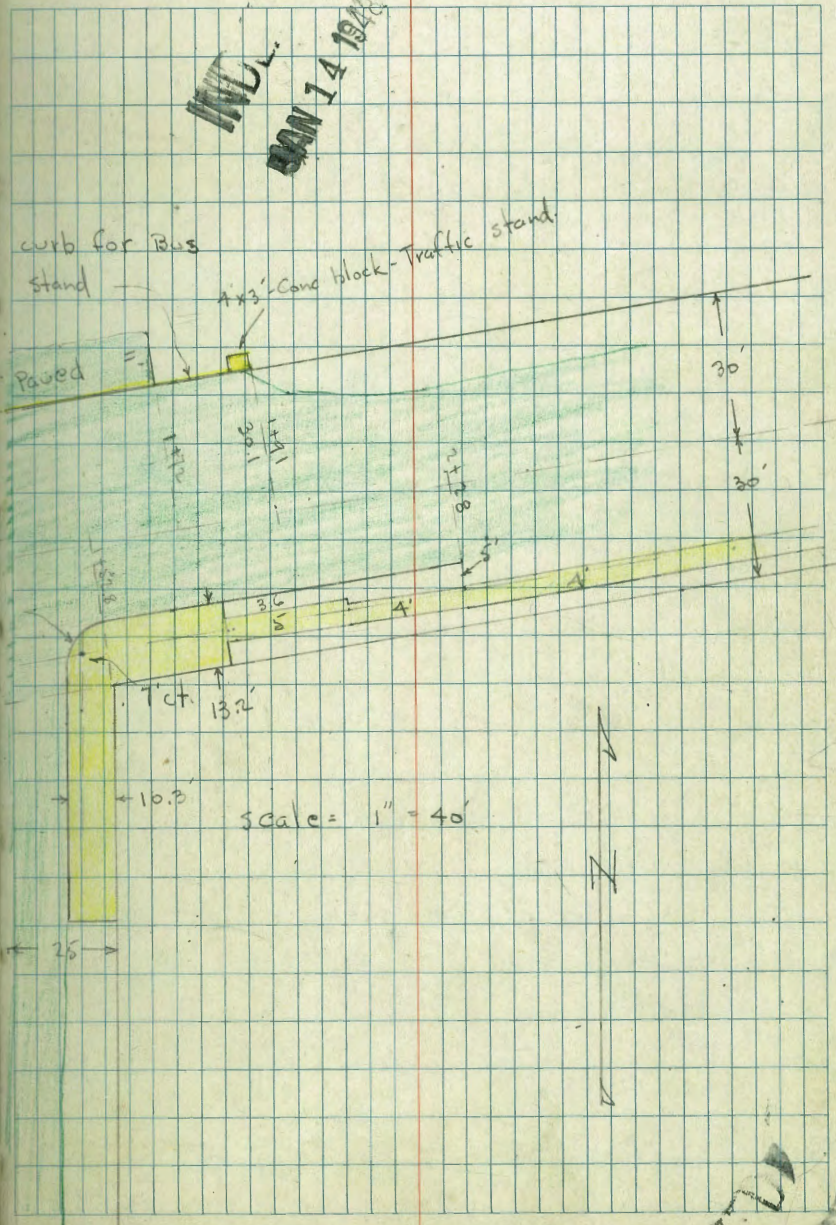 JAN 14 194
curb for Bus
stand
4'x3'-Conc block-Traffic stand.
Paved
30'
1+72
1+91
30.1
2+28
30'
5'
3.6
5
4'
4'
T'ct.
13.2'
10.3'
scale = 1" = 40'
N
25